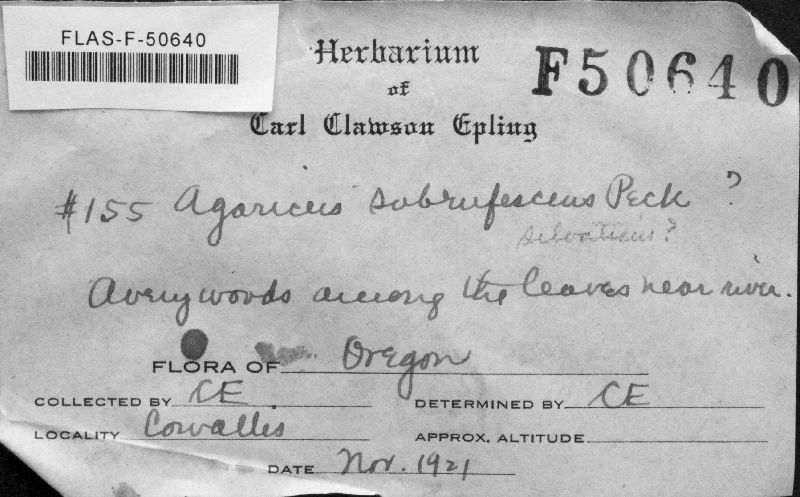 FLAS-F-50640
Herbarium
of
Carl Clawson Epling
F50640
#155 Agaricus subrufescens Peck ?
silvaticus?
Avery woods among the leaves near river.
FLORA OF Oregon
COLLECTED BY CE
DETERMINED BY CE
LOCALITY Corvallis
APPROX. ALTITUDE
DATE Nov. 1921